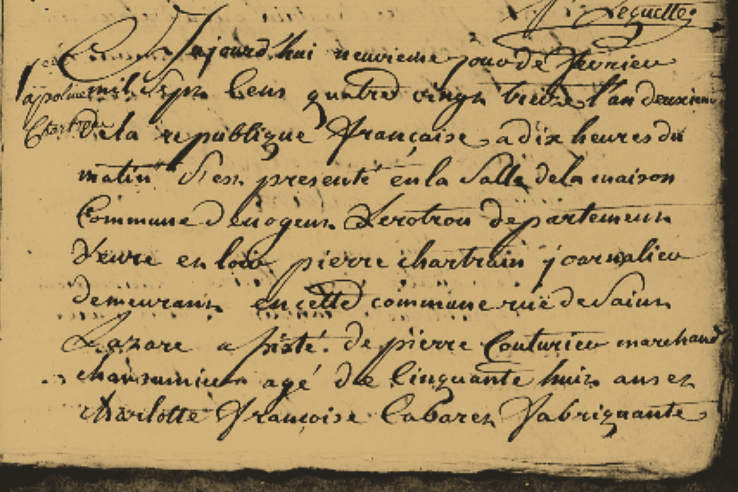 Lequette
Aujourd'hui neuvieme jour de fevrier
mil sept cens quatre vingt treize l'an deuxieme
apoline
Chartrain
de la republique française a dix heures du
matin s'est presenté en la salle de la maison
Commune de nogent Lerotrou departement
d'eure en loir pierre chartrain journalier
demeurant en cette commune rue de saint
Lazare assisté de pierre Couturier marchand
agé de Cinquante huit ans et
charlotte françoise Cabaret fabriquante